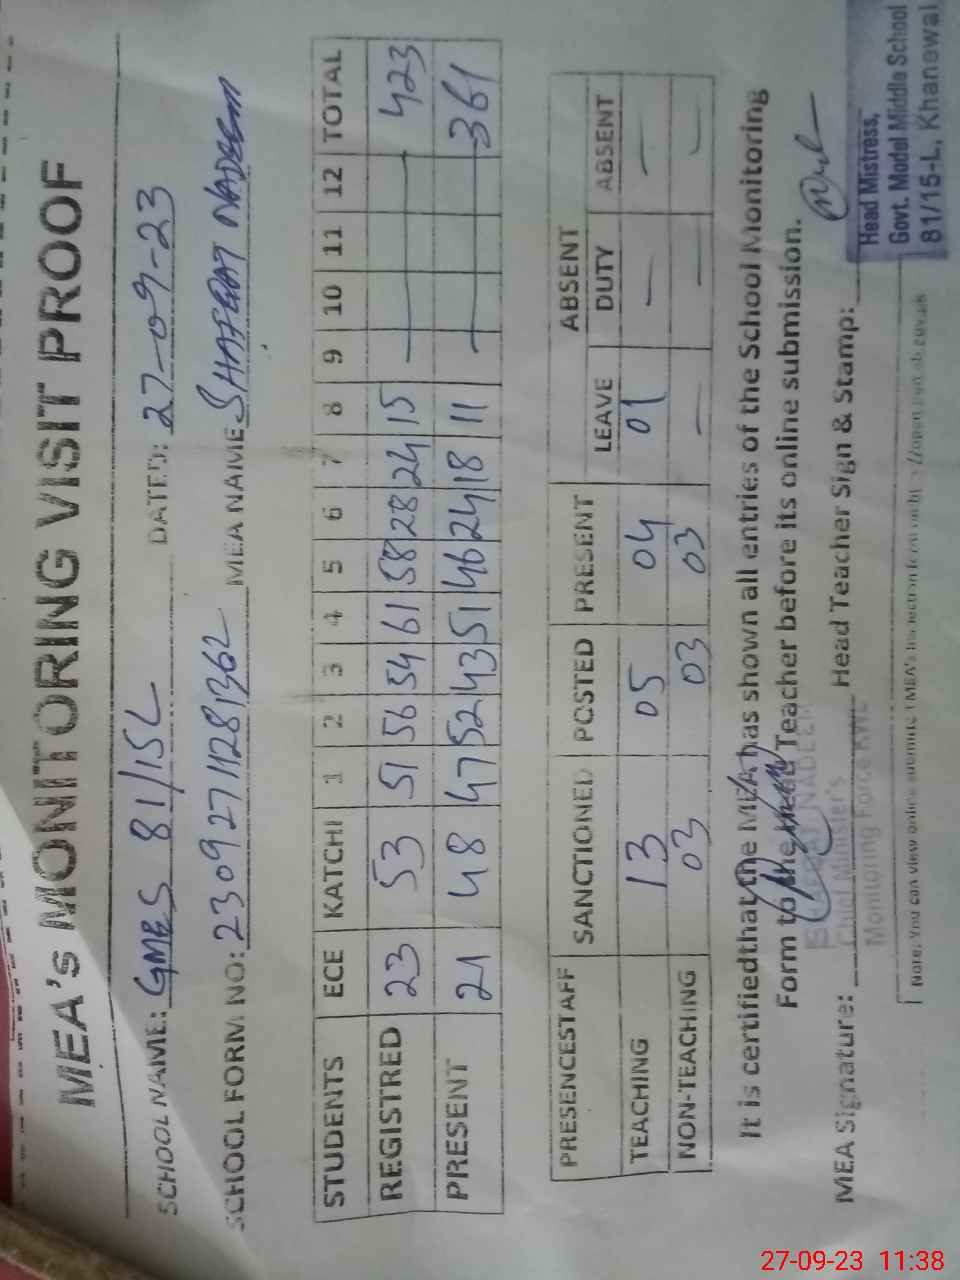 MEA's MONITORING VISIT PROOF
SCHOOL NAME: GMES 81/15L DATED: 27-09-23
SCHOOL FORM NO: 23092711281362 MEA NAME SHAFQAT NADEEM
STUDENTS ECE KATCHI 1 2 3 4 5 6 7 8 9 10 11 12 TOTAL
REGISTRED 23 53 51 56 54 61 58 28 24 15 — 423
PRESENT 21 48 47 52 43 51 46 24 18 11 — 361
PRESENCESTAFF SANCTIONED POSTED PRESENT ABSENT
LEAVE DUTY ABSENT
TEACHING 13 05 04 01 — —
NON-TEACHING 03 03 03 — — —
It is certifiedthat the MEA has shown all entries of the School Monitoring
Form to the Head Teacher before its online submission.
SHAFQAT NADEEM
Chief Minister's
Monitoring Force KWL
MEA Signature: Head Teacher Sign & Stamp:
Head Mistress,
Govt. Model Middle School
81/15-L, Khanewal
Note: You can view online submitted MEA's
27-09-23 11:38